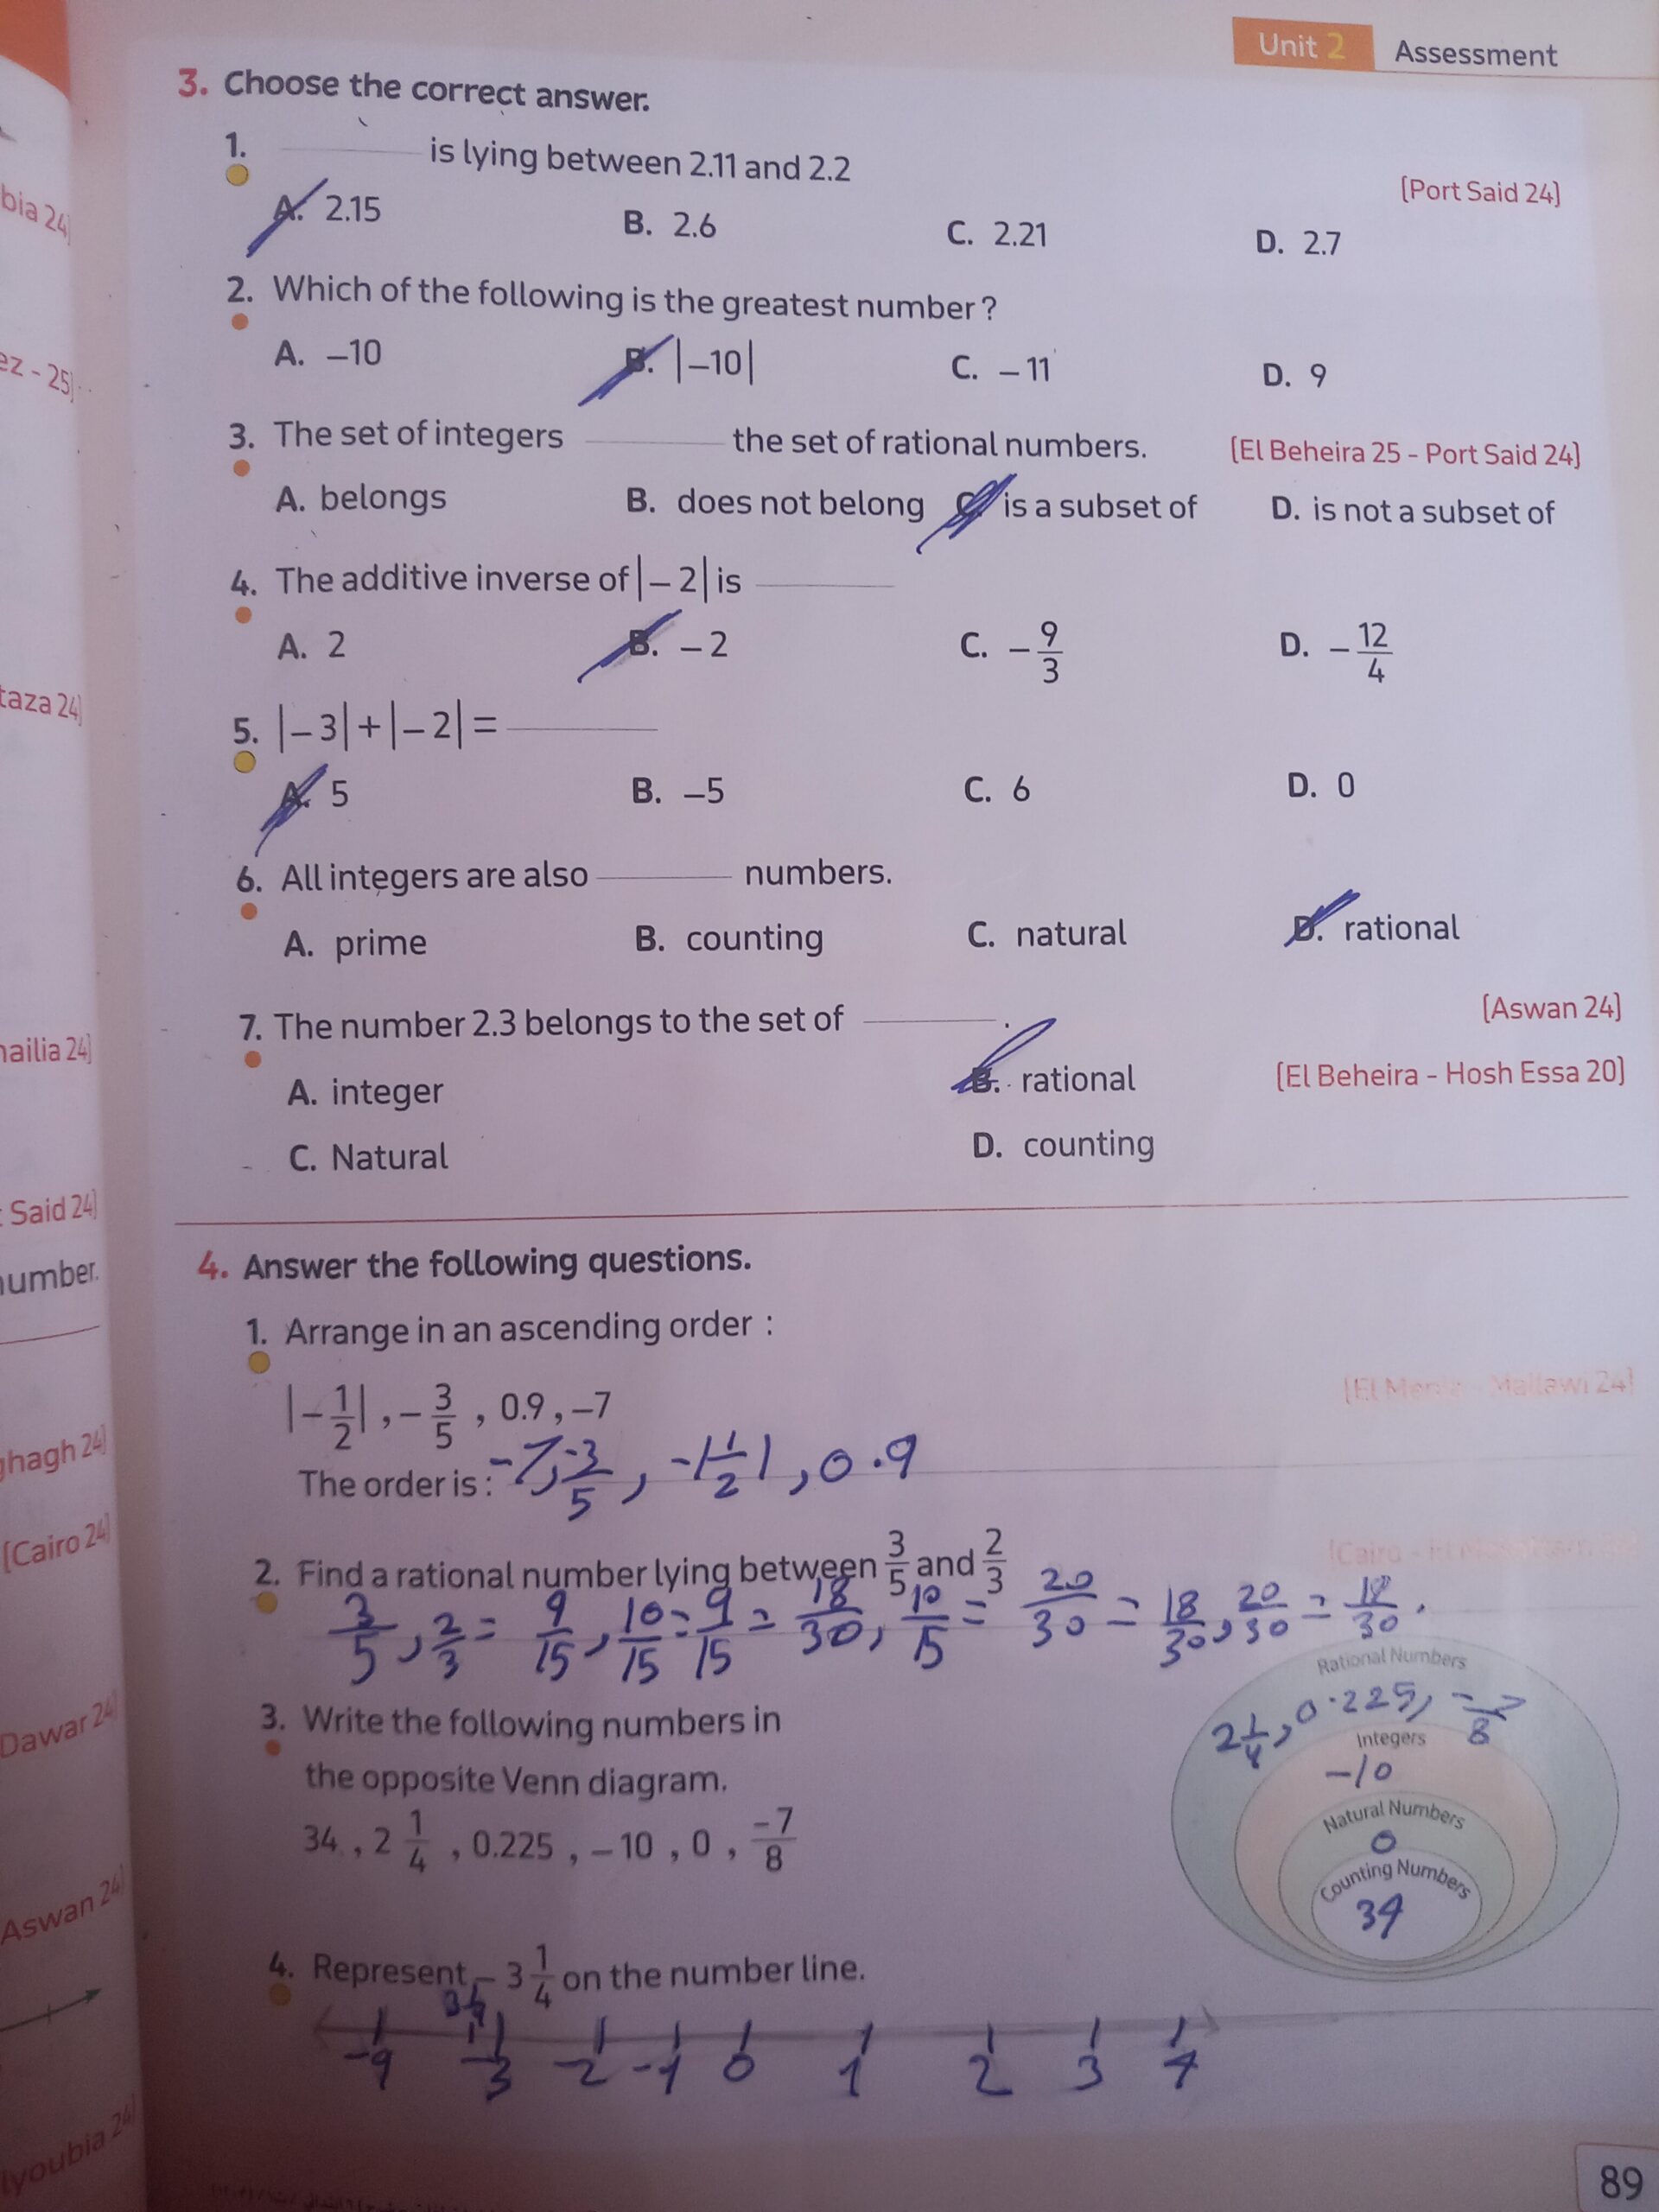 Unit 2 Assessment
3. Choose the correct answer.
1. ______ is lying between 2.11 and 2.2
[Port Said 24]
A. 2.15 B. 2.6 C. 2.21 D. 2.7
2. Which of the following is the greatest number?
A. –10 B. |–10| C. – 11 D. 9
3. The set of integers ______ the set of rational numbers. [El Beheira 25 - Port Said 24]
A. belongs B. does not belong C. is a subset of D. is not a subset of
4. The additive inverse of |– 2| is ______
A. 2 B. – 2 C. – 9/3 D. – 12/4
5. |– 3| + |– 2| = ______
A. 5 B. –5 C. 6 D. 0
6. All integers are also ______ numbers.
A. prime B. counting C. natural D. rational
7. The number 2.3 belongs to the set of ______. [Aswan 24]
A. integer B. rational [El Beheira - Hosh Essa 20]
C. Natural D. counting
4. Answer the following questions.
1. Arrange in an ascending order :
Mallawi 24]
|– 1/2| , – 3/5 , 0.9 , –7
The order is : -7, -3/5 , -|1/2| , 0.9
2. Find a rational number lying between 3/5 and 2/3
[Cairo -
3/5 , 2/3 = 9/15 , 10/15 = 9/15 = 18/30 , 10/15 = 20/30 = 18/30 , 20/30 = 18/30 .
3. Write the following numbers in
the opposite Venn diagram.
34 , 2 1/4 , 0.225 , – 10 , 0 , –7/8
Rational Numbers
2 1/4 , 0.225, -7/8
Integers
-10
Natural Numbers
0
Counting Numbers
34
4. Represent – 3 1/4 on the number line.
-4 -3 -2 -1 0 1 2 3 4
89
bia 24]
ez - 25]
taza 24]
ailia 24]
Said 24]
umber.
hagh 24]
[Cairo 24]
Dawar 24]
Aswan 24]
lyoubia 24]